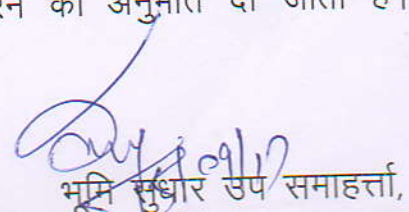 की अनुमति दी जाती है।
भूमि सुधार उप समाहर्त्ता,